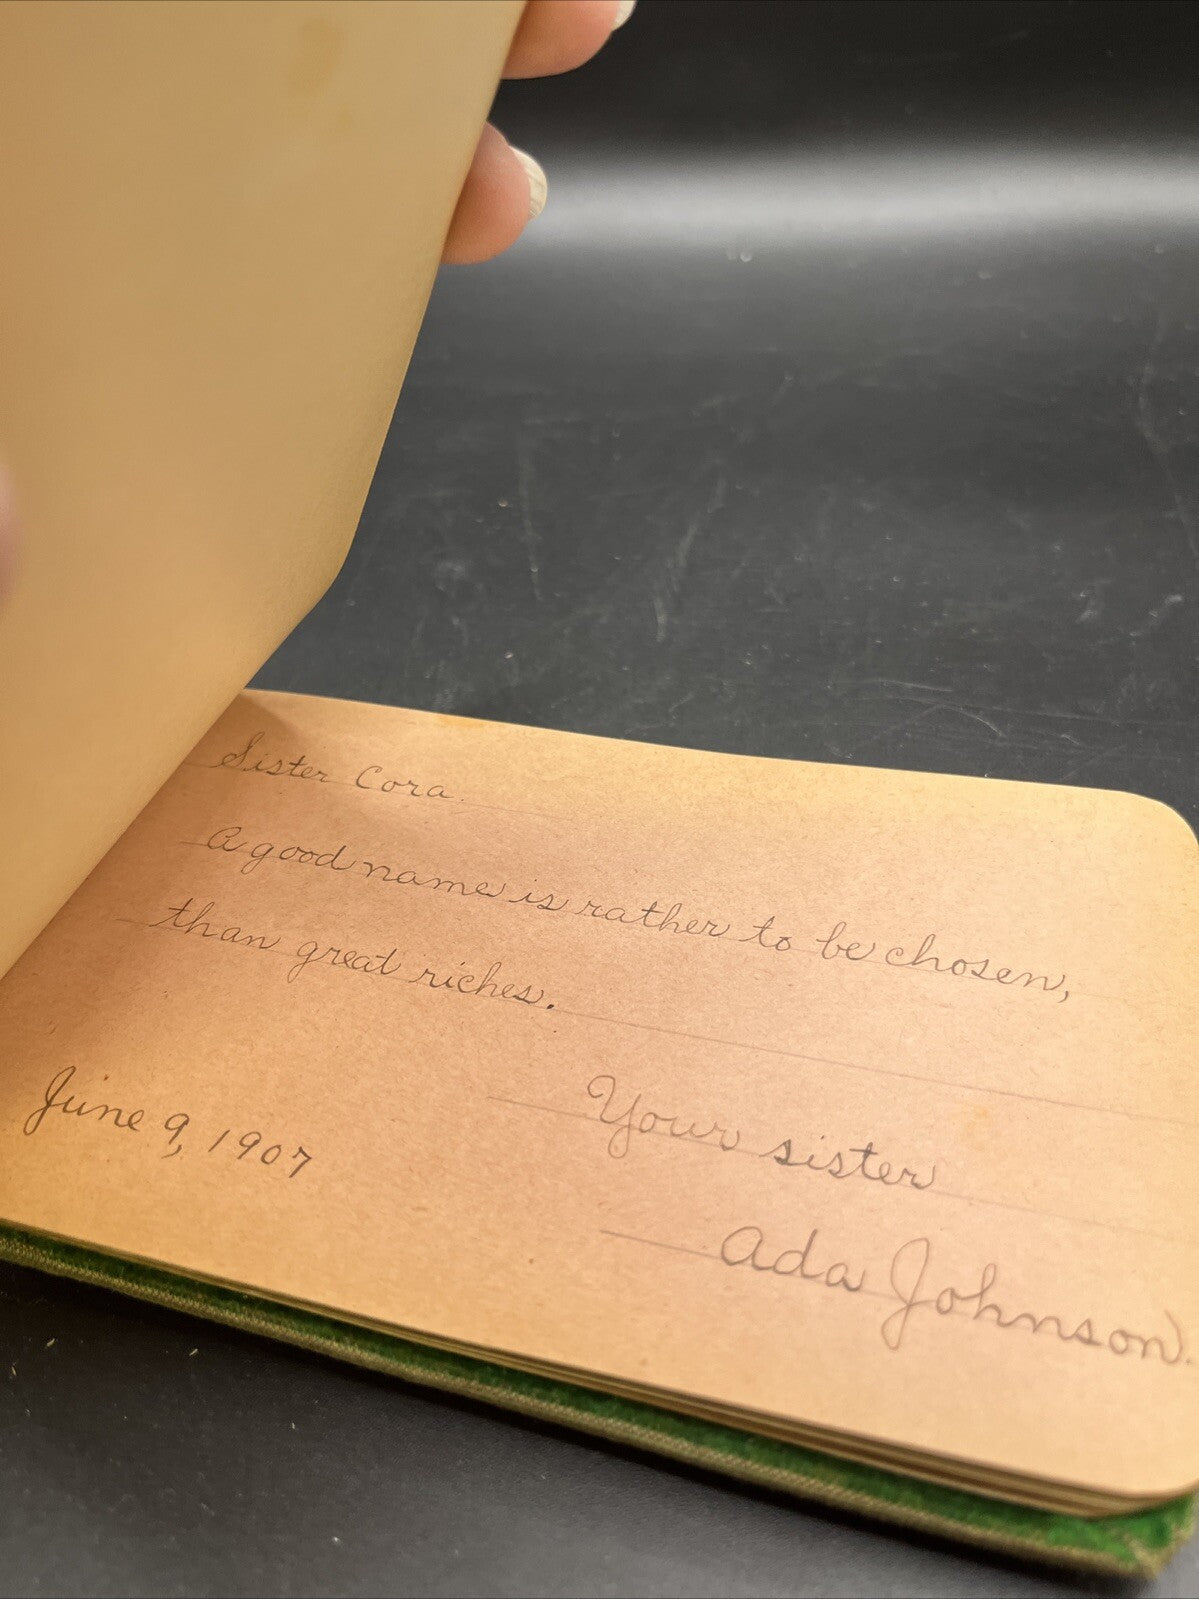 Sister Cora.
A good name is rather to be chosen,
than great riches.
Your sister
June 9, 1907
Ada Johnson.